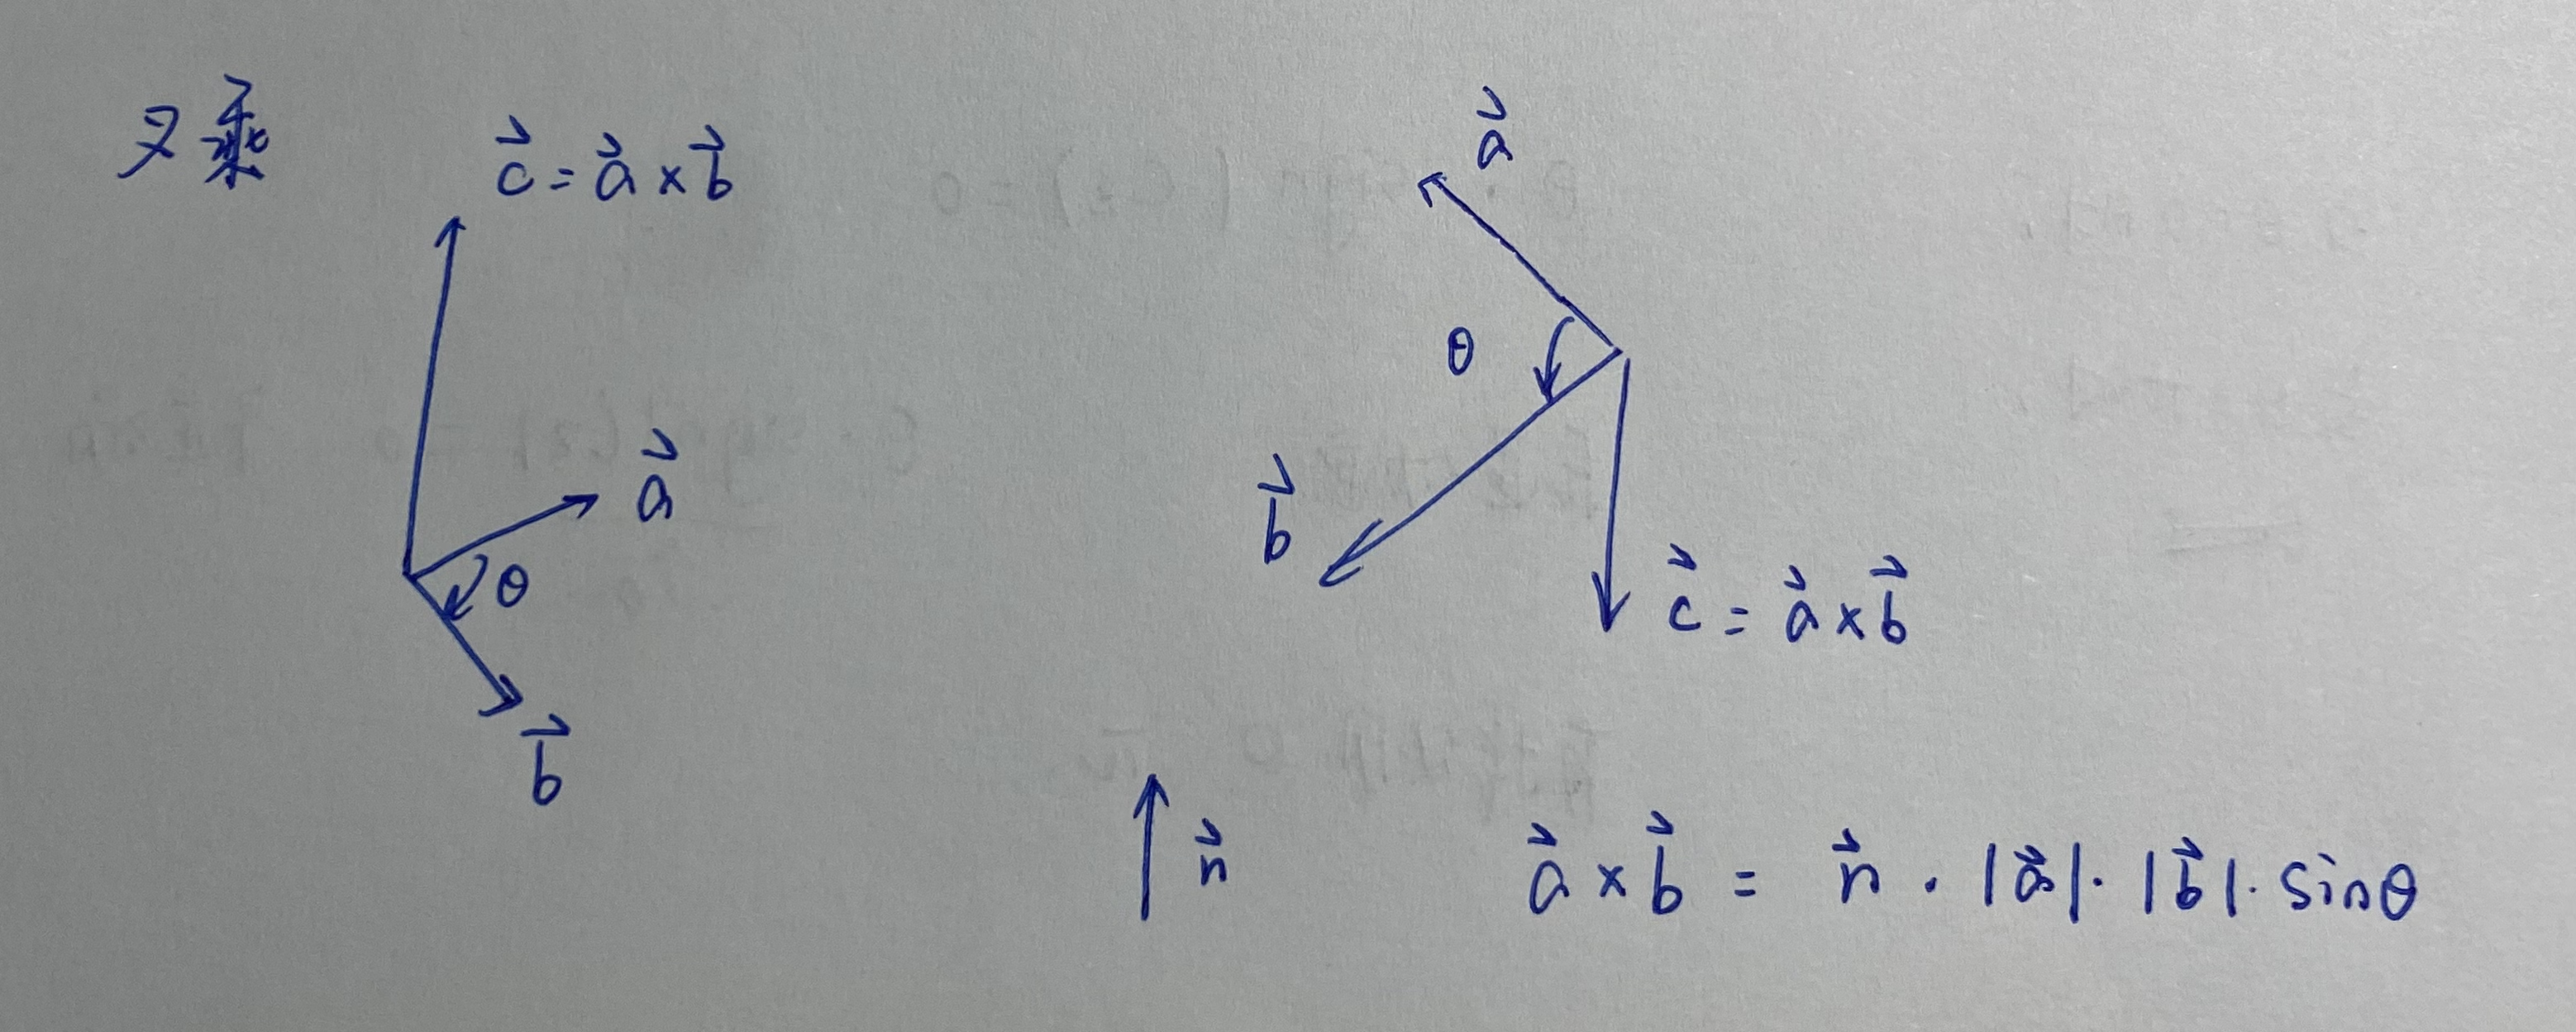 叉乘
c⃗ = a⃗ × b⃗
a⃗
θ
b⃗
a⃗
θ
b⃗
c⃗ = a⃗ × b⃗
n⃗
a⃗ × b⃗ = n⃗ · |a⃗| · |b⃗| · sinθ